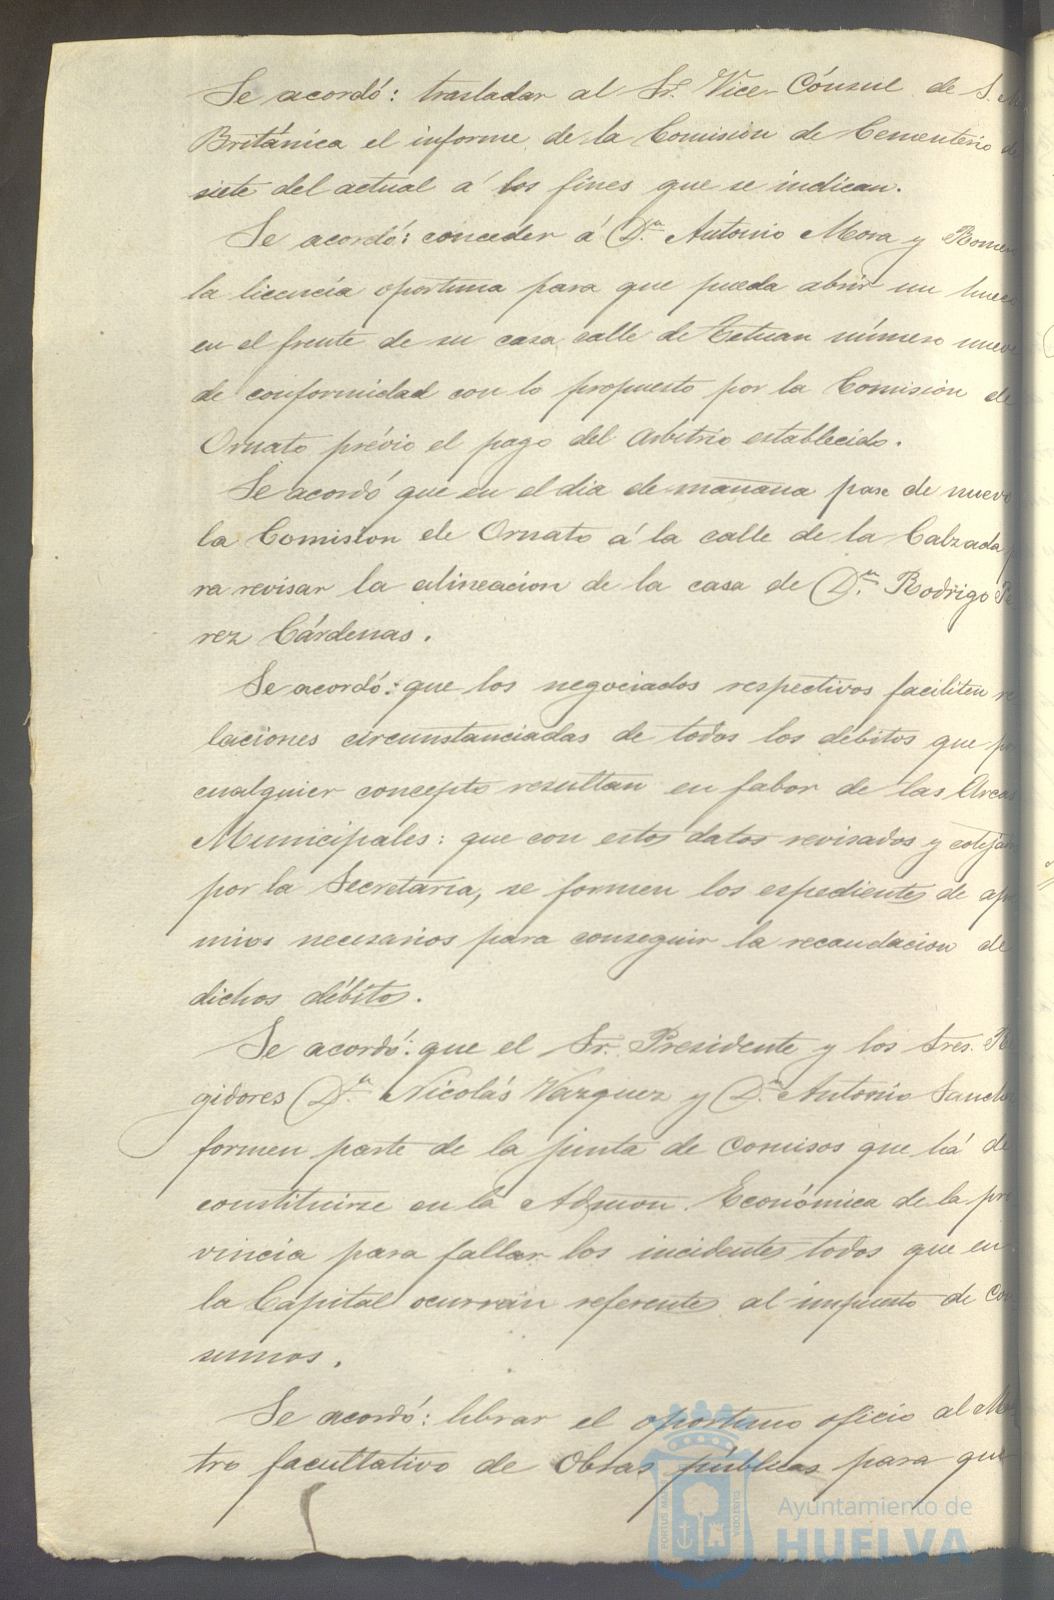 Se acordó: trasladar al Sr. Vice-Cónsul de S. M.
Británica el informe de la Comision de Cementerio de
siete del actual á los fines que se indican.
Se acordó: conceder á Dn. Antonio Mora y Romer
la licencia oportuna para que pueda abrir un hueco
en el frente de su casa calle de Tetuan número nueve
de conformidad con lo propuesto por la Comision de
Ornato prévio el pago del arbitrio establecido.
Se acordó que en el dia de mañana pase de nuevo
la Comision de Ornato á la calle de la Calzada p
ra revisar la alineacion de la casa de Dn. Rodrigo Pe
rez Cárdenas.
Se acordó: que los negociados respectivos faciliten re
laciones circunstanciadas de todos los débitos que po
cualquier concepto resultan en fabor de las Arcas
Municipales: que con estos datos revisados y cotejad
por la Secretaria, se formen los espedientes de apre
mios necesarios para conseguir la recaudacion de
dichos débitos.
Se acordó: que el Sr. Presidente y los Sres. Re
gidores Dn. Nicolás Vazquez y Dn. Antonio Sanche
formen parte de la junta de comisos que há de
constituirse en la Admon. Económica de la pro
vincia para fallar los incidentes todos que en
la Capital ocurran referentes al impuesto de Con
sumos.
Se acordó: librar el oportuno oficio al Maes
tro facultativo de Obras públicas para que
PORTUS MARIS
CUSTODIA
Ayuntamiento de
HUELVA